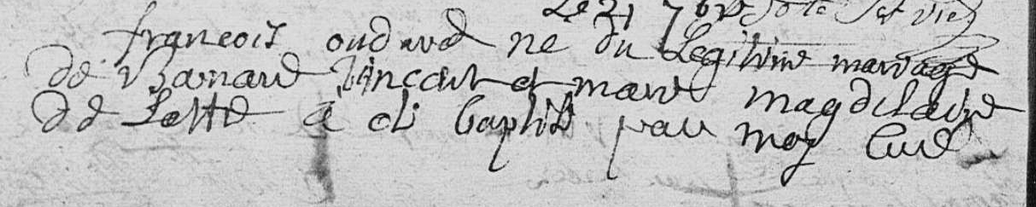 Le 21 7bre
francois oudard né du Legitime mariage
de Barnard vincant et marie magdelaine
de Lette a eté baptisé par moy Curé